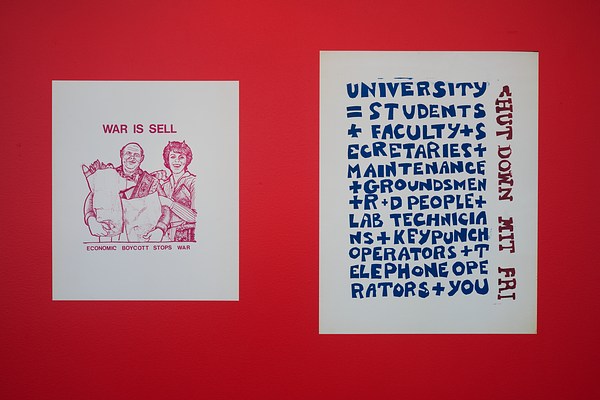 WAR IS SELL
ECONOMIC BOYCOTT STOPS WAR
UNIVERSITY
= STUDENTS
+ FACULTY+S
ECRETARIES+
MAINTENANCE
+GROUNDSMEN
+R+D PEOPLE+
LAB TECHNICIA
NS+KEYPUNCH
OPERATORS+T
ELEPHONE OPE
RATORS+YOU
SHUT DOWN MIT FRI